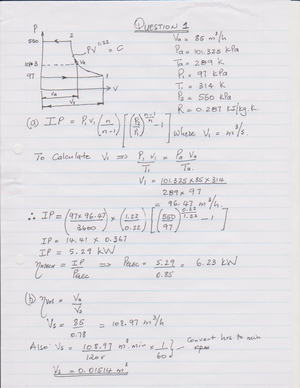 QUESTION 1
P
550
2
PV^1.22 = C
101.3
Va
97
1
V
Va
Vs
Va = 85 m³/h
Pa = 101.325 kPa
Ta = 289 K
P1 = 97 kPa
T1 = 314 K
P2 = 550 kPa
R = 0.287 kJ/kg.K
(a) I.P = P1 V1 (n/n-1) [(P2/P1)^(n-1/n) - 1] where V1 = m³/s.
To Calculate V1 ⇒ P1 V1/T1 = Pa Va/Ta
V1 = 101.325 x 85 x 314/289 x 97
= 96.47 m³/h
∴ IP = (97 x 96.47/3600) x (1.22/0.22) [(550/97)^(0.22/1.22) - 1]
IP = 14.41 x 0.367
IP = 5.29 kW
ηmech = IP/Pelec ⇒ Pelec = 5.29/0.85 = 6.23 kW
(b) ηvol = Va/Vs
Vs = 85/0.78 = 108.97 m³/h
Also Vs = 108.97 m³.min/120r x (1/60) } Convert hrs to min
Vs = 0.01514 m³